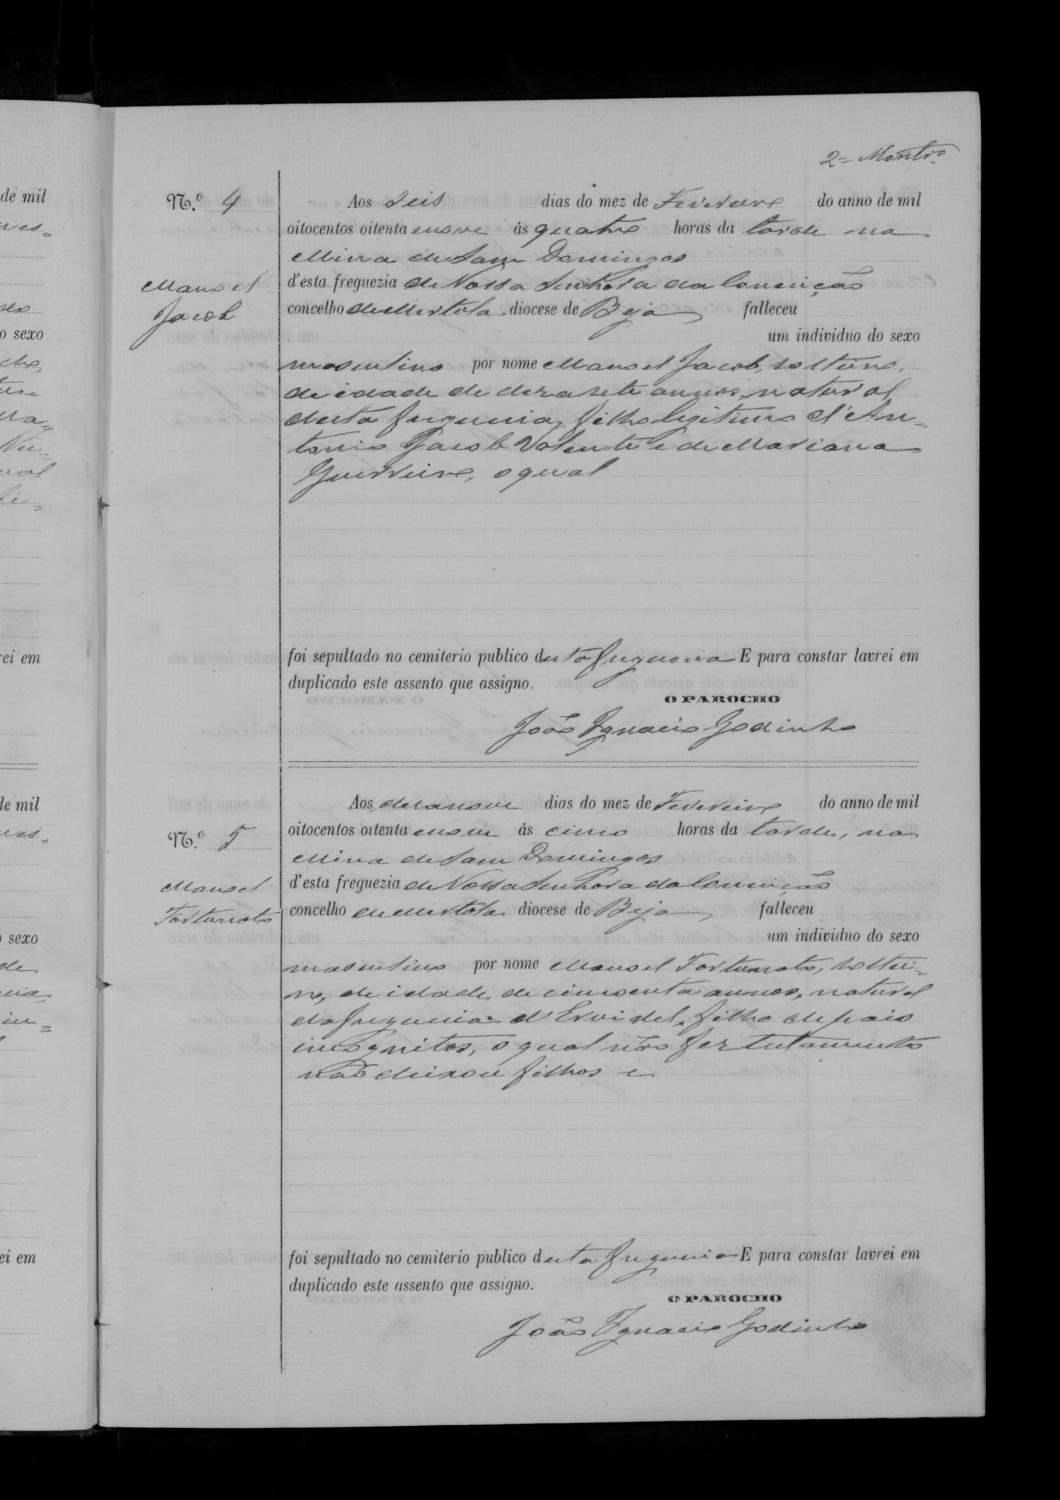 2= Montrº
N.º 4
Manoel
Jacob
Aos seis dias do mez de Fevereiro do anno de mil
oitocentos oitenta enove ás quatro horas da tarde na
Mina de Sam Domingos
d'esta freguezia de Nossa Senhora da Conceição
concelho de Mertola diocese de Beja, falleceu
um individuo do sexo
masculino por nome Manoel Jacob, solteiro,
de idade de dezasete annos, natural
desta freguezia, filho legitimo d'An-
tonio Jacob Valente e de Mariana
Guerreiro, o qual
foi sepultado no cemiterio publico desta freguezia E para constar lavrei em
duplicado este assento que assigno.
O PAROCHO
João Ignacio Godinho
N.º 5
Manoel
Fortunato
Aos dezanove dias do mez de Fevereiro do anno de mil
oitocentos oitenta enove ás cinco horas da tarde, na
Mina de Sam Domingos
d'esta freguezia de Nossa Senhora da Conceição
concelho de Mertola diocese de Beja, falleceu
um individuo do sexo
masculino por nome Manoel Fortunato, soltei-
ro, de idade de cincoenta annos, natural
da freguezia d'Ervidel, filho de pais
incognitos, o qual não fez testamento
não deixou filhos e
foi sepultado no cemiterio publico desta freguezia E para constar lavrei em
duplicado este assento que assigno.
O PAROCHO
João Ignacio Godinho